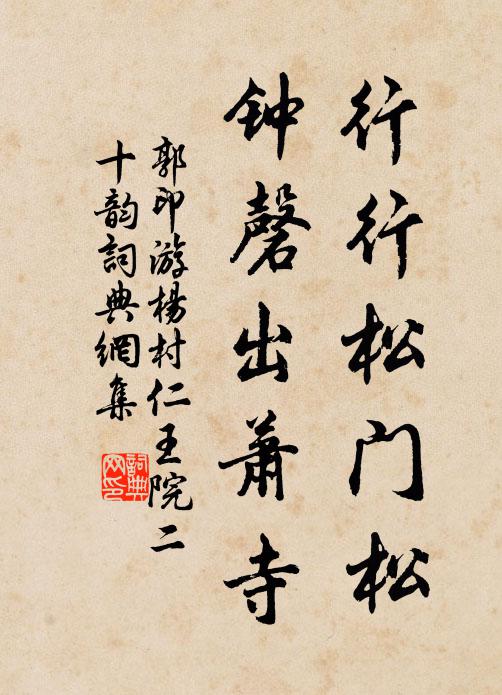 行行松门松
钟磬出萧寺
郭印游楊村仁王院二
十韵詞典網集
詞典网印